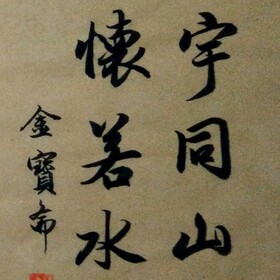 宇同山
懷若水
金寶希